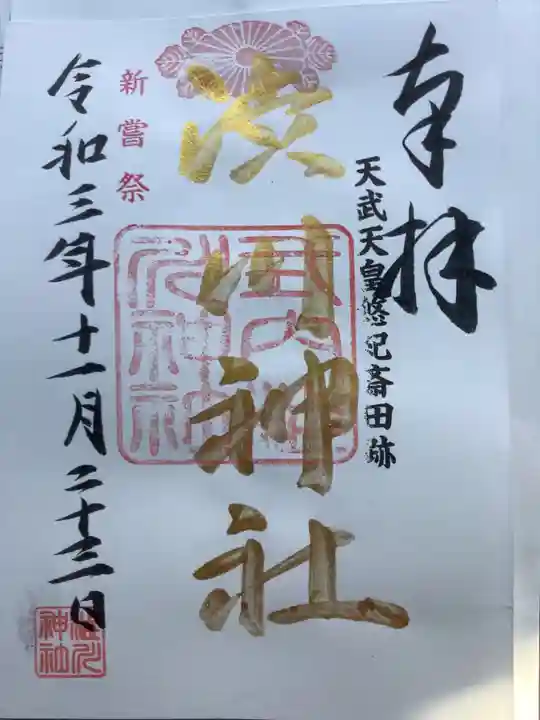 奉拝
天武天皇悠紀斎田跡
渋川神社
新嘗祭
令和三年十一月二十三日
渋川
神社